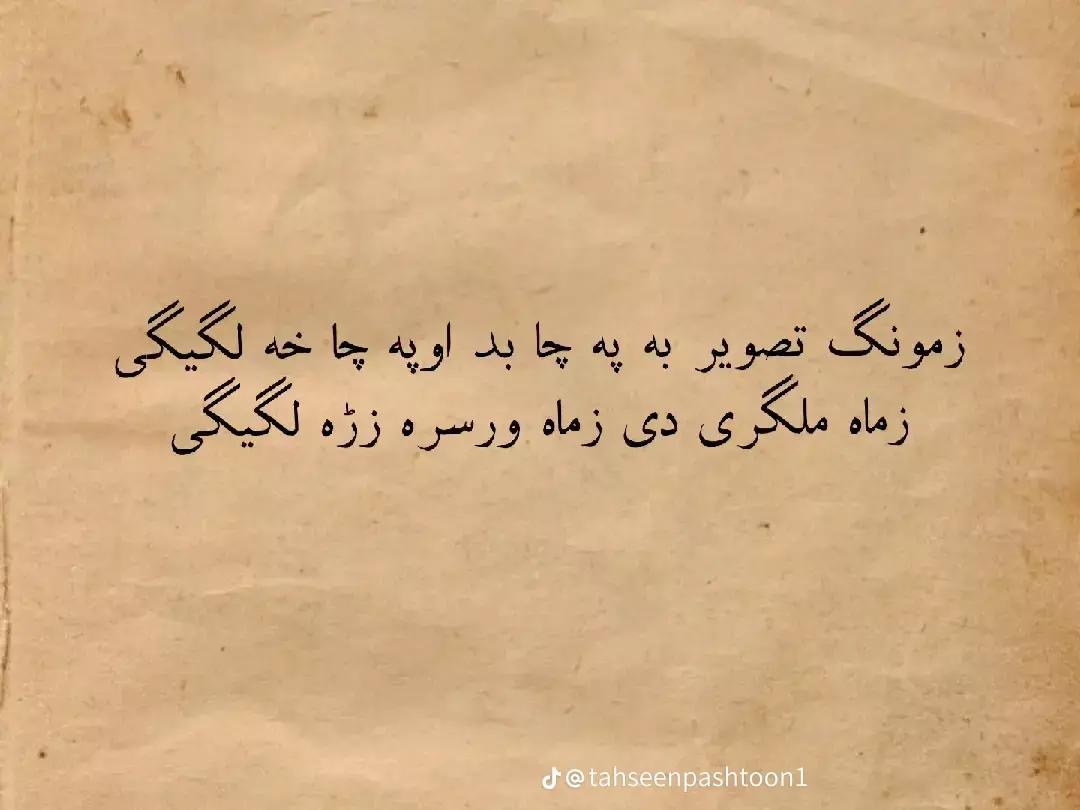 زمونگ تصویر به په چا بد اوپه چا خه لگیگی
زماه ملگری دی زماه ورسره زڑه لگیگی
@tahseenpashtoon1